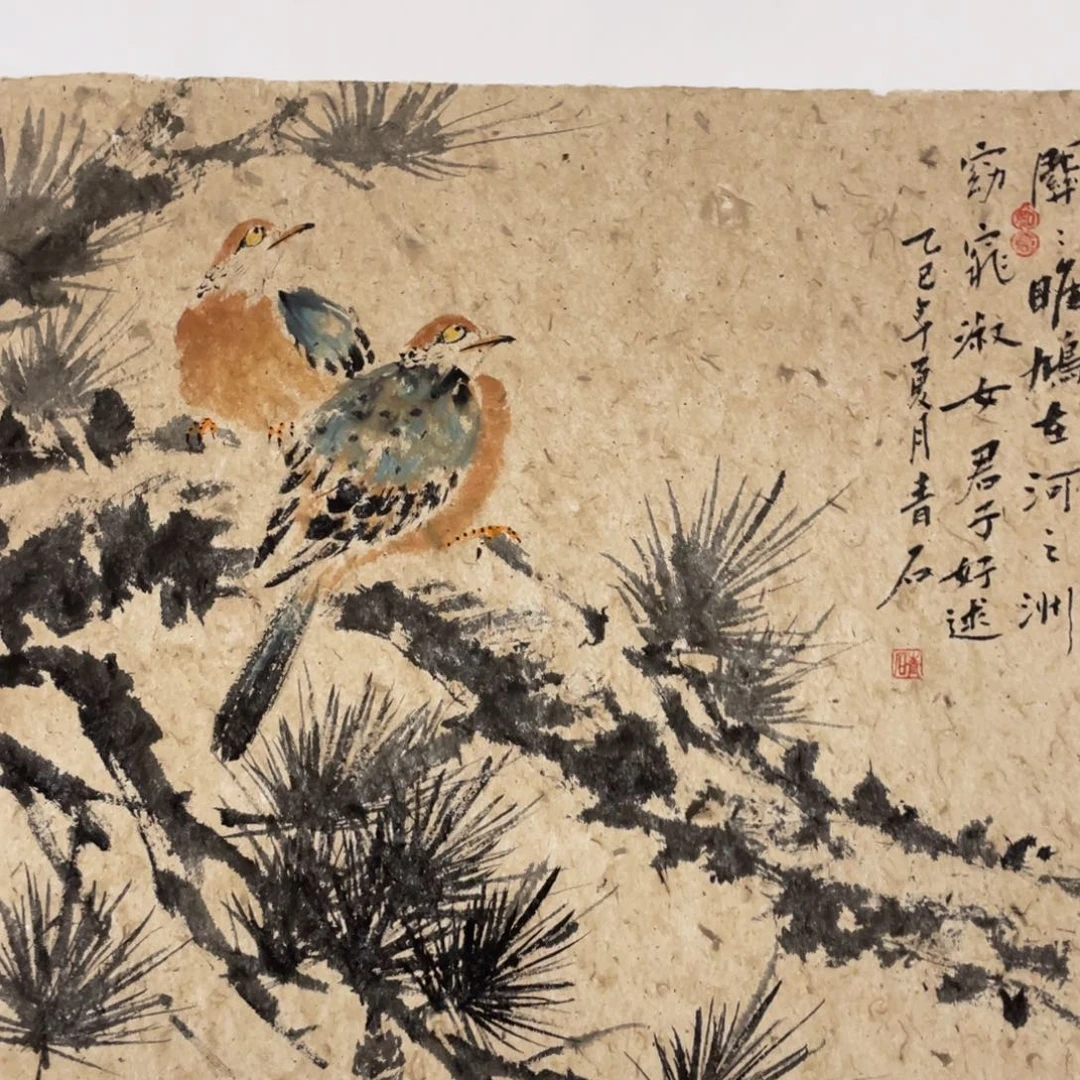 關〻雎鳩在河之洲
窈窕淑女君子好逑
乙巳年夏月青石